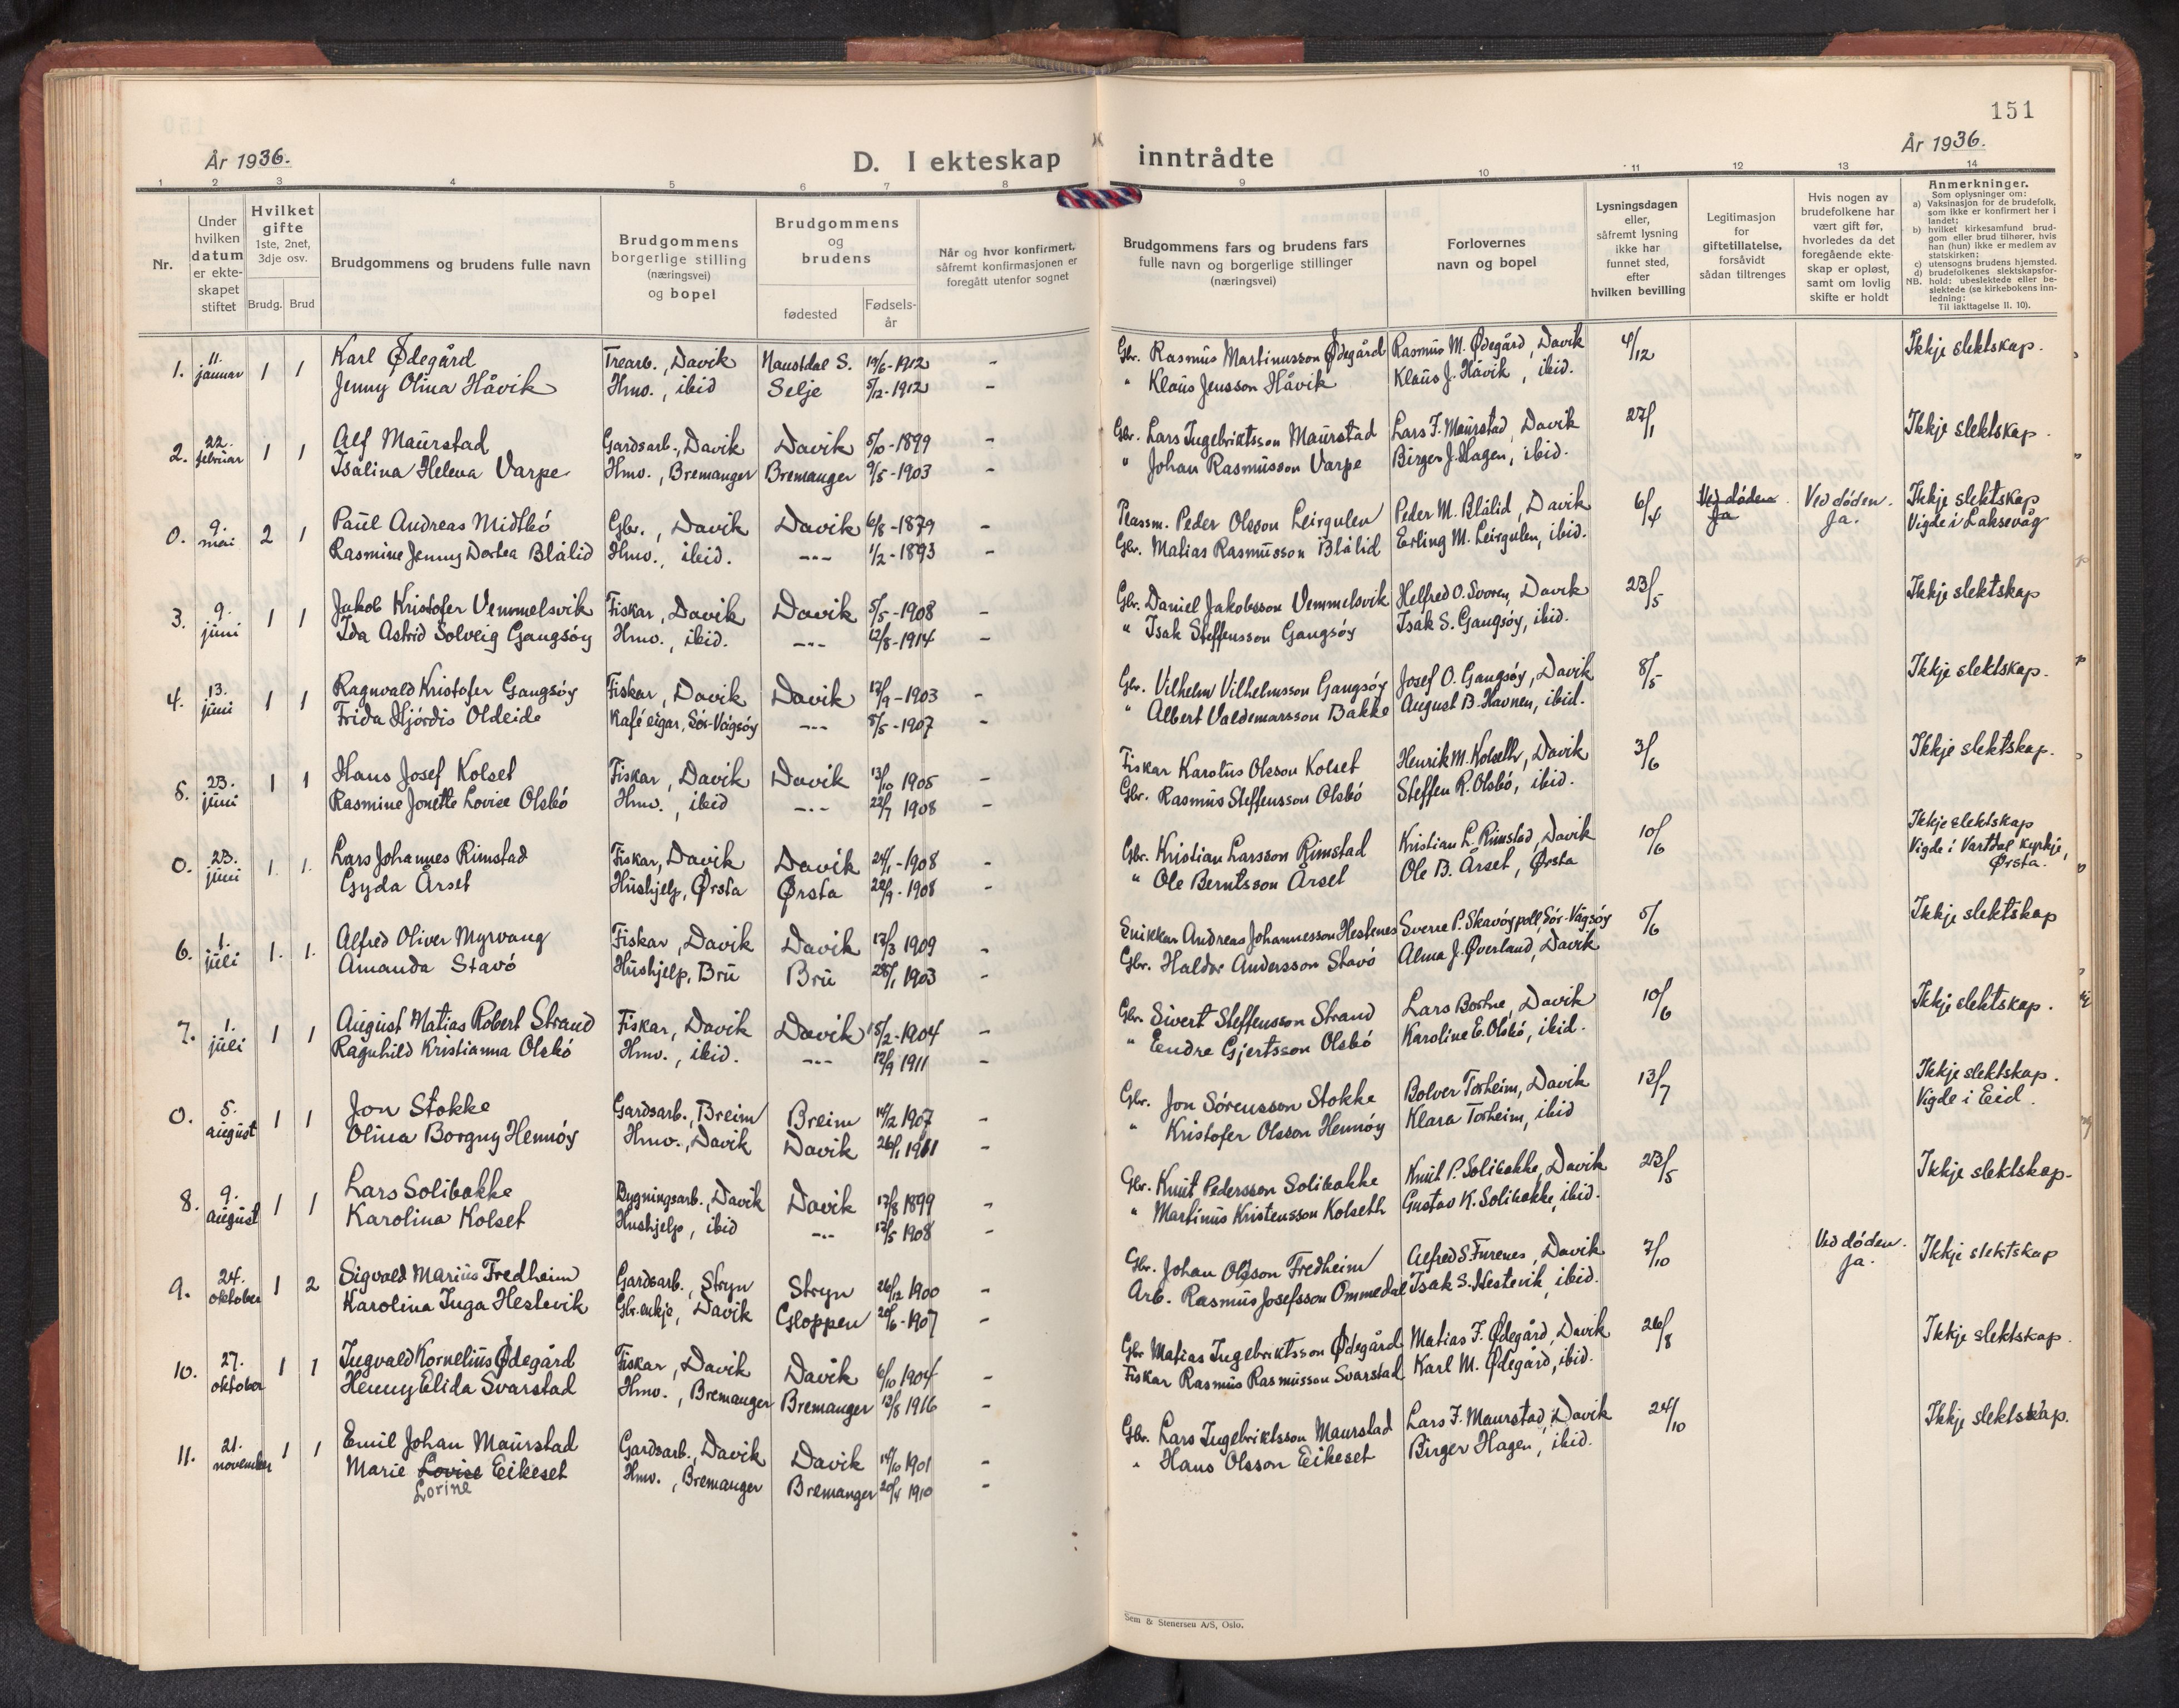 151
År 1936.
D. I ekteskap inntrådte
År 1936.
1 2 3 4 5 6 7 8 9 10 11 12 13 14
Nr.
Under hvilken datum er ekteskapet stiftet
Hvilket gifte 1ste, 2net, 3dje osv.
Brudg. Brud
Brudgommens og brudens fulle navn
Brudgommens borgerlige stilling (næringsvei) og bopel
Brudgommens og brudens
fødested
Fødsels-år
Når og hvor konfirmert, såfremt konfirmasjonen er foregått utenfor sognet
Brudgommens fars og brudens fars fulle navn og borgerlige stillinger (næringsvei)
Forlovernes navn og bopel
Lysningsdagen eller, såfremt lysning ikke har funnet sted, efter hvilken bevilling
Legitimasjon for giftetillatelse, forsåvidt sådan tiltrenges
Hvis nogen av brudefolkene har vært gift før, hvorledes da det foregående ekteskap er opløst, samt om lovlig skifte er holdt
Anmerkninger.
Som oplysninger om:
a) Vaksinasjon for de brudefolk, som ikke er konfirmert her i landet;
b) hvilket kirkesamfund brudgom eller brud tilhører, hvis han (hun) ikke er medlem av statskirken;
c) utensogns brudens hjemsted.
d) brudefolkenes slektskapsforhold: ubeslektede eller beslektede (se kirkebokens innledning:
NB.
Til iakttagelse II. 10).
1. 11. januar 1 1 Karl Ødegård Trearb., Davik Naustdal S. 19/6-1912 - Gbr. Rasmus Martinusson Ødegård Rasmus M. Ødegård, Davik 4/12 Ikkje slektskap.
Jenny Olina Håvik Hmo., ibid Selje 5/12-1912 - " Klaus Jensson Håvik Klaus J. Håvik, ibid.
2. 22. februar 1 1 Alf Maurstad Gardsarb., Davik Davik 5/10-1899 - Gbr. Lars Ingebriktsson Maurstad Lars I. Maurstad, Davik 27/1 Ikkje slektskap.
Isalina Helena Varpe Hmo., Bremanger Bremanger 9/5-1903 - " Johan Rasmusson Varpe Birger J. Hagen, ibid.
0. 9. mai 2 1 Paul Andreas Midtbö Gbr., Davik Davik 6/8-1879 - Plassm. Peder Olsson Leirgulen Peder M. Blålid, Davik 6/4 Ved döden Ja Ved döden. Ja. Ikkje slektskap
Rasmine Jenny Dortea Blålid Hmo., ibid. -"- 1/2-1893 - Gbr. Matias Rasmusson Blålid Erling M. Leirgulen, ibid. Vigde i Laksevåg
3. 9. juni 1 1 Jakob Kristofer Vemmelsvik Fiskar, Davik Davik 5/5-1908 - Gbr. Daniel Jakobsson Vemmelsvik Helfred O. Svoren, Davik 23/5 Ikkje slektskap
Ida Astrid Solveig Gangsöy Hmo., ibid. -"- 12/8-1914 - " Isak Steffensson Gangsöy Isak S. Gangsöy, ibid.
4. 13. juni 1 1 Ragnvald Kristofer Gangsöy Fiskar, Davik Davik 17/9-1903 - Gbr. Vilhelm Vilhelmsson Gangsöy Josef O. Gangsöy, Davik 8/5 Ikkje slektskap.
Frida Hjördis Oldeide Kaféeigar, Sör-Vågsöy -"- 8/5-1907 - " Albert Valdemarsson Bakke August B. Havnen, ibid.
5. 23. juni 1 1 Hans Josef Kolset Fiskar, Davik Davik 13/10 1905 - Fiskar Karolus Olsson Kolset Henrik M. Kolseth, Davik 3/6 Ikkje slektskap.
Rasmine Jonette Lovise Olsbö Hmo., ibid -"- 22/7 1908 - Gbr. Rasmus Steffensson Olsbö Steffen R. Olsbö, ibid.
0. 23. juni 1. 1. Lars Johannes Rimstad Fiskar, Davik Davik 24/1-1908 - Gbr. Kristian Larsson Rimstad Kristian L. Rimstad, Davik 10/6 Ikkje slektskap
Gyda Årset Hushjelp, Ørsta Ørsta 22/9-1908 - " Ole Berntsson Årset Ole B. Årset, Ørsta Vigde i Vartdal kyrkje, Ørsta.
6. 1. juli 1. 1. Alfred Oliver Myrvang Fiskar, Davik Davik 17/3 1909 - Snikkar Andreas Johannesson Hestenes Sverre P. Skavöypoll, Sör-Vågsöy 5/6 Ikkje slektskap
Amanda Stavö Hushjelp, Bru Bru 28/1 1903 - Gbr. Haldor Andersson Stavö Alma J. Øverland, Davik
7. 1. juli 1 1 August Matias Robert Strand Fiskar, Davik Davik 15/2-1904 - Gbr. Sivert Steffensson Strand Lars Bortne, Davik 10/6 Ikkje slektskap.
Ragnhild Kristianna Olsbö Hmo., ibid. -"- 12/9 1911 - " Endre Gjertsson Olsbö Karoline E. Olsbö, ibid.
0. 5. august 1 1 Jon Stokke Gardsarb., Breim Breim 14/2 1907 - Gbr. Jon Sörensson Stokke Bolver Torheim, Davik 13/7 Ikkje slektskap.
Olina Borgny Hennöy Hmo., Davik Davik 26/1 1911 - " Kristofer Olsson Hennöy Klara Torheim, ibid Vigde i Eid.
8. 9. august 1 1 Lars Solibakke Bygningsarb., Davik Davik 17/8 1899 - Gbr. Knut Pedersson Solibakke Knut P. Solibakke, Davik 23/5 Ikkje slektskap.
Karolina Kolset Hushjelp, ibid -"- 12/5 1908 - " Martinus Kristensson Kolseth Gustav K. Solibakke, ibid.
9. 24. oktober 1 2 Sigvald Marius Fredheim Gardsarb., Stryn Stryn 26/12 1900 - Gbr. Johan Olsson Fredheim Alfred S. Furenes, Davik 7/10 Ved döden. Ja. Ikkje slektskap
Karolina Inga Hestevik Gbr. enkje, Davik Gloppen 20/6-1907 - Arb. Rasmus Josefsson Ommedal Isak S. Hestevik, ibid.
10. 27. oktober 1 1 Ingvald Kornelius Ødegård Fiskar, Davik Davik 6/10 1904 - Gbr Matias Ingebriktsson Ødegård Matias I. Ødegård, Davik 26/8 Ikkje slektskap.
Henny Elida Svarstad Hmo., Bremanger Bremanger 13/8 1916 - Fiskar Rasmus Rasmusson Svarstad Karl M. Ødegård, ibid.
11. 21. november 1 1 Emil Johan Maurstad Gardsarb., Davik Davik 14/10 1901 - Gbr. Lars Ingebriktsson Maurstad Lars I. Maurstad, Davik 24/10 Ikkje slektskap.
Marie Lovise Eikeset Hmo., Bremanger Bremanger 20/4 1910 - " Hans Olsson Eikeset Birger Hagen, ibid.
Lorine
Sem & Stenersen A/S, Oslo.